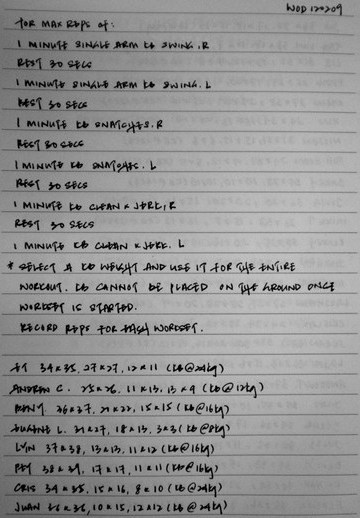 WOD 120209
FOR MAX REPS OF:
1 MINUTE SINGLE ARM KB SWING, R
REST 30 SECS
1 MINUTE SINGLE ARM KB SWING. L
REST 30 SECS
1 MINUTE KB SNATCHES. R
REST 30 SECS
1 MINUTE KB SNATCHES. L
REST 30 SECS
1 MINUTE KB CLEAN & JERK, R
REST 30 SECS
1 MINUTE KB CLEAN & JERK. L
* SELECT A KB WEIGHT AND USE IT FOR THE ENTIRE
WORKOUT. KB CANNOT BE PLACED ON THE GROUND ONCE
WORKSET IS STARTED.
RECORD REPS FOR EACH WORKSET.
34 & 35, 27 & 27, 12 & 11 (KB@24kg)
ANDREW C. 25 & 26, 11 & 13, 13 & 9 (KB@12kg)
15 & 15 (KB@16kg)
L. 21 & 27, 18 & 13, 3 & 3 (KB@8kg)
LYN 37 & 38, 13 & 13, 11 & 12 (KB@16kg)
17 & 17, 11 & 11 (KB@16kg)
CRIS 34 & 35, 15 & 16, 8 & 10 (KB@24kg)
JUAN 36 & 36, 10 & 15, 12 & 12 (KB@24kg)